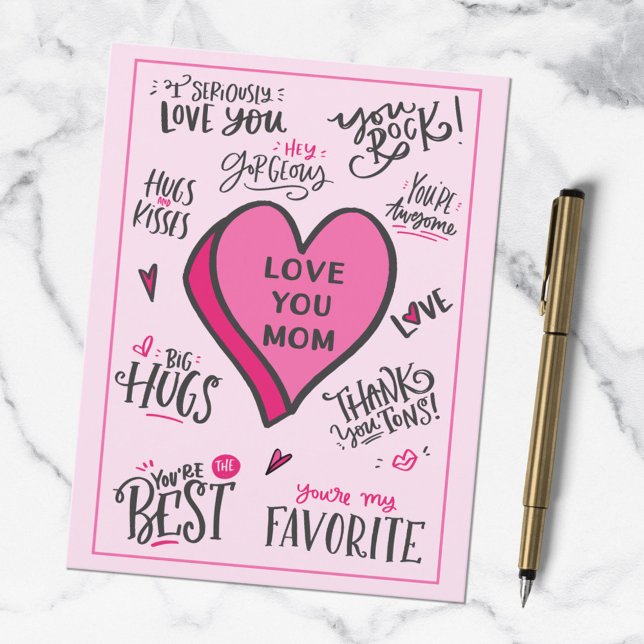 I SERIOUSLY
LOVE YOU
you
ROCK!
HEY
GORGEOUS
HUGS
AND
KISSES
YOU'RE
Awesome
LOVE
YOU
MOM
LOVE
BIG
HUGS
THANK
You TONS!
YOU'RE THE
BEST
you're my
FAVORITE